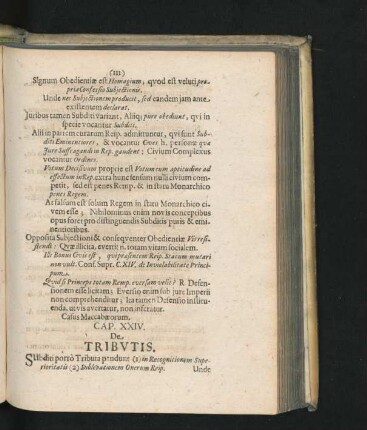 (111)
Signum Obedientiæ est Homagium, qvod est veluti pro-
pria Confessio Subjectionis.
Unde nec Subjectionem producit, sed eandem jam ante
existentem declarat.
Juribus tamen Subditi variant. Aliiq; pure obediunt, qvi in
specie vocantur Subditi.
Alii in partem curarum Reip. admittuntur, qvi sunt Sub-
diti Eminentiores, & vocantur Cives h. personæ qvæ
Jure Suffragandi in Rep. gaudent: Civium Complexus
vocantur Ordines.
Votum Decisivum proprie est Votum cum aptitudine ad
effectum in Rep. extra hunc sensum nulli civium com-
petit, sed est penes Remp. & in statu Monarchico
penes Regem.
At falsum est solum Regem in statu Monarchico ci-
vem esse; Nihilominus enim novis conceptibus
opus foret pro distinguendis Subditis puris & emi-
nentioribus.
Opposita Subjectionis & conseqventer Obedientiæ Vis resi-
stendi: Qvæ illicita, evertit n. totam vitam socialem.
Et Bonus Civis est, qvi præsentem Reip. Statum mutari
non vult. Conf. Supr. C. XIV. de Inviolabilitate Princi-
pum.
Qvid si Princeps totam Remp. eversam velit? R. Defen-
sionem esse licitam; Eversio enim sub jure Imperii
non comprehenditur; Ita tamen Defensio instituen-
da, ut vis avertatur, non inferatur.
Casus Maccabæorum.
CAP. XXIV.
De
TRIBVTIS.
SUbditi porrò Tributa pendunt (1) in Recognitionem Supe-
rioritatis (2) Sublevationem Onerum Reip.
Unde